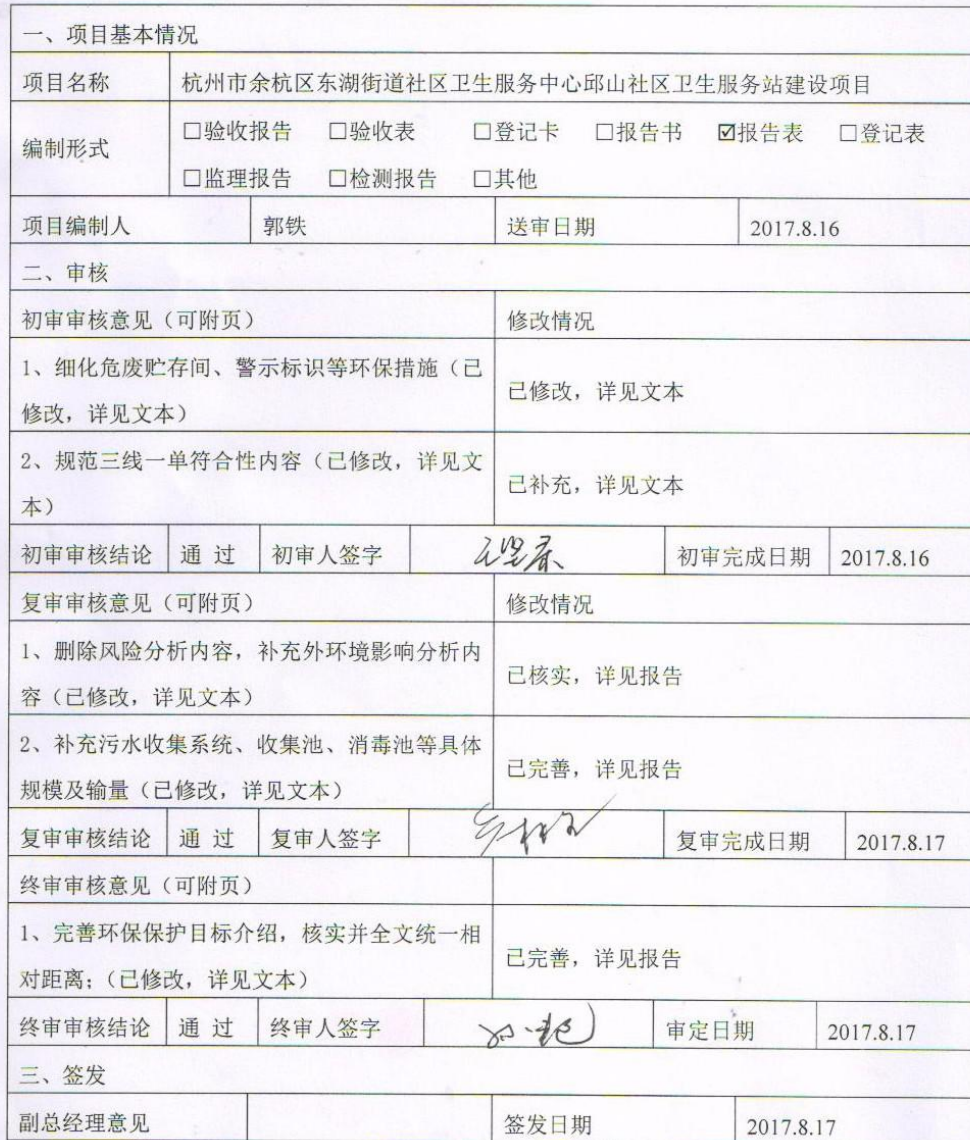 一、项目基本情况
项目名称 杭州市余杭区东湖街道社区卫生服务中心邱山社区卫生服务站建设项目
编制形式
□验收报告 □验收表 □登记卡 □报告书 ☑报告表 □登记表
□监理报告 □检测报告 □其他
项目编制人 郭铁 送审日期 2017.8.16
二、审核
初审审核意见（可附页） 修改情况
1、细化危废贮存间、警示标识等环保措施（已
修改，详见文本）
已修改，详见文本
2、规范三线一单符合性内容（已修改，详见文
本）
已补充，详见文本
初审审核结论 通 过 初审人签字 初审完成日期 2017.8.16
复审审核意见（可附页） 修改情况
1、删除风险分析内容，补充外环境影响分析内
容（已修改，详见文本）
已核实，详见报告
2、补充污水收集系统、收集池、消毒池等具体
规模及输量（已修改，详见文本）
已完善，详见报告
复审审核结论 通 过 复审人签字 复审完成日期 2017.8.17
终审审核意见（可附页）
1、完善环保保护目标介绍，核实并全文统一相
对距离；（已修改，详见文本）
已完善，详见报告
终审审核结论 通 过 终审人签字 审定日期 2017.8.17
三、签发
副总经理意见 签发日期 2017.8.17